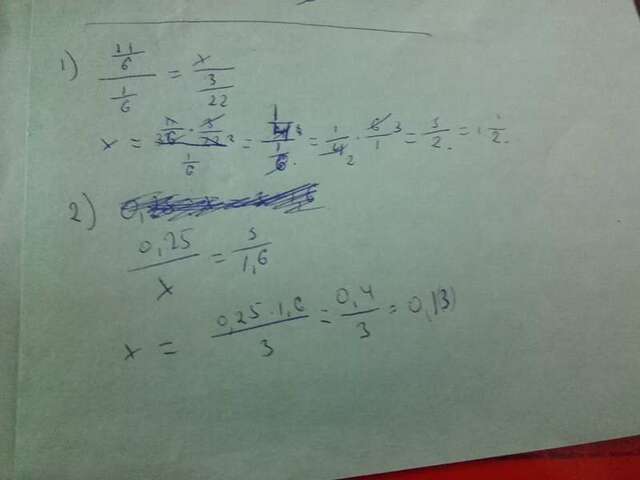 1) \frac{\frac{11}{6}}{\frac{1}{6}} = \frac{x}{\frac{3}{22}}
x = \frac{\frac{11}{6} \cdot \frac{3}{22}}{\frac{1}{6}} = \frac{\frac{1}{4}}{\frac{1}{6}} = \frac{1}{4} \cdot \frac{6}{1} = \frac{3}{2} = 1\frac{1}{2}
2)
\frac{0,25}{x} = \frac{3}{1,6}
x = \frac{0,25 \cdot 1,6}{3} = \frac{0,4}{3} = 0,(13)